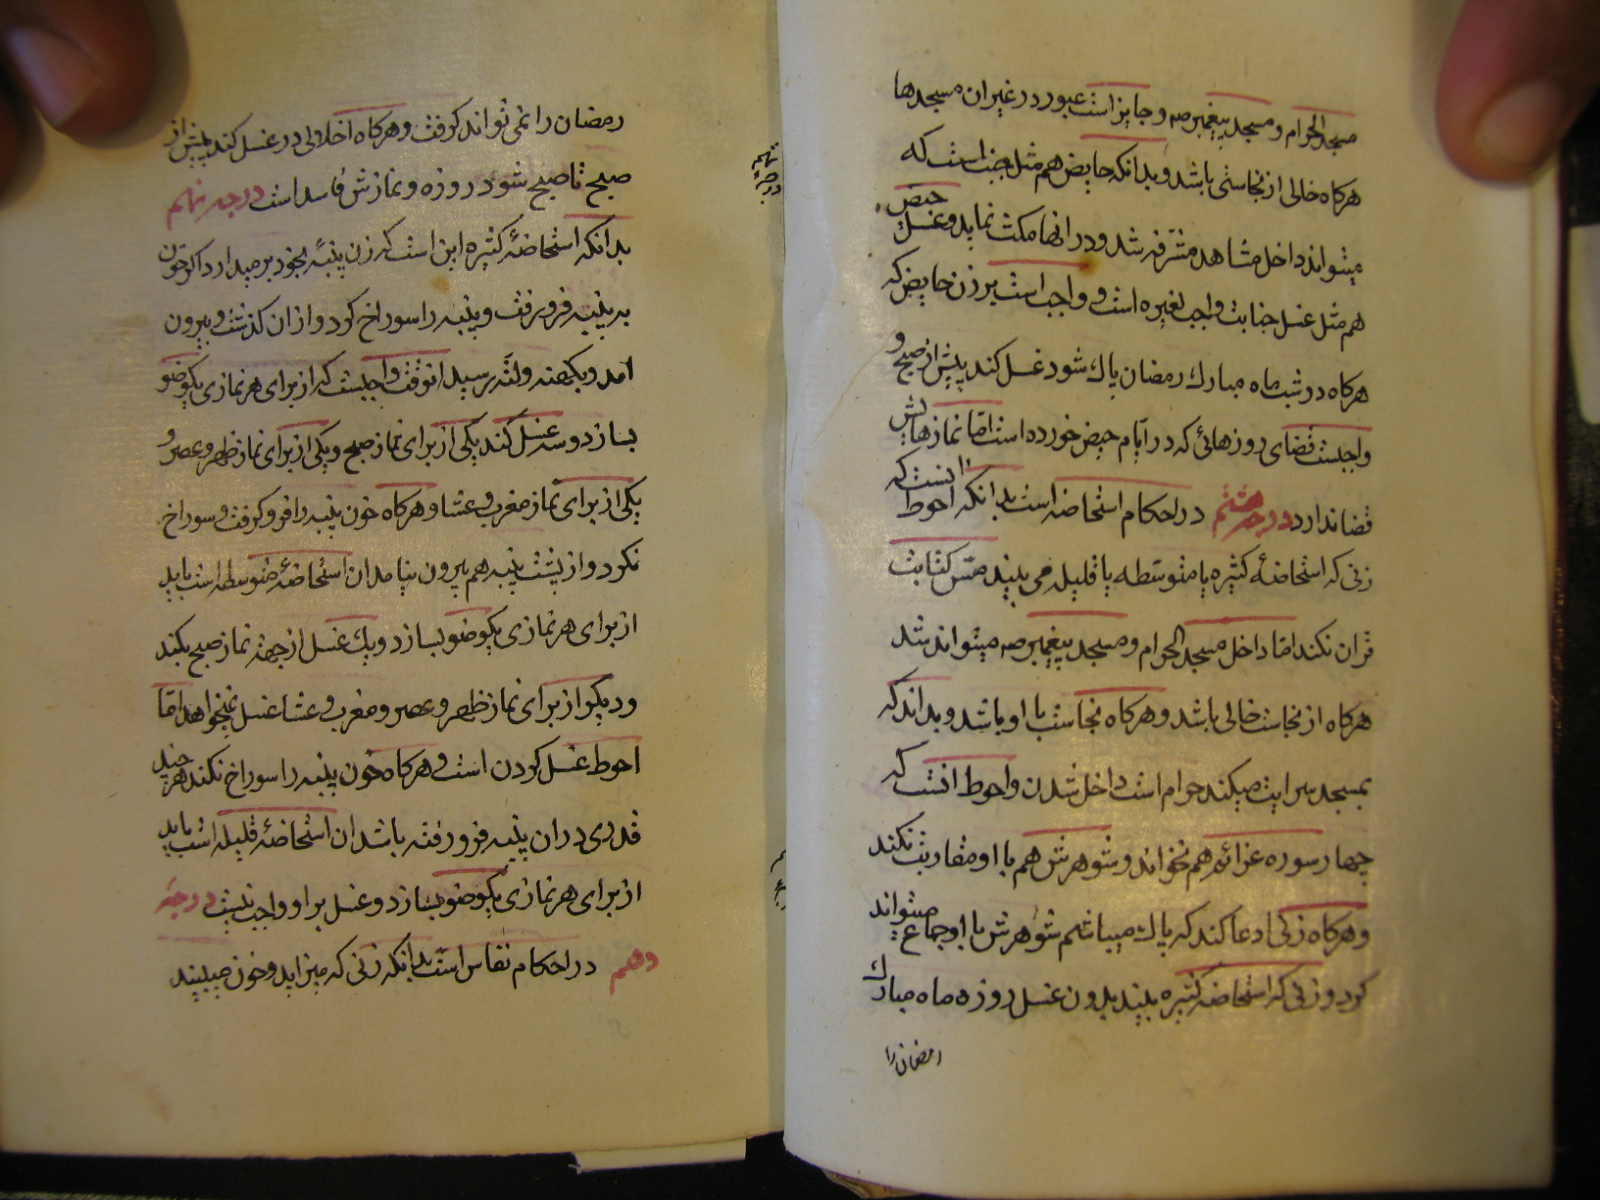 مسجد الحرام و مسجد پیغمبر صه و جایز است عبور در غیر ان مسجدها
هرکاه خالی از نجاستی باشد و بدانکه حایض هم مثل جنب است که
میتواند داخل مشاهد مشرفه شد و در انها مکث نماید و غسل حیض
هم مثل غسل جنابت واجب لغیره است و واجب است بر زن حایض که
هرکاه در شب ماه مبارک رمضان پاک شود غسل کند پیش از صبح و
واجبست قضای روزهائی که در ایّام حیض خورده است امّا نمازهایش
قضا ندارد درجه هشتم در احکام استحاضه است بدانکه احوط انست که
زنی که استحاضهٔ کثیره یا متوسّطه یا قلیله می بیند مسّ کتابت
قران نکند امّا داخل مسجد الحرام و مسجد پیغمبر صه میتواند شد
هرکاه از نجاست خالی باشد و هرکاه نجاست با او باشد و بداند که
بمسجد سرایت میکند حرام است داخل شدن و احوط انست که
چهار سوره عزائم هم نخواند و شوهرش هم با او مقاربت نکند
و هرکاه زنی ادعا کند که پاک میباشم شوهرش با او جماع میتواند
کرد و زنی که استحاضه کثیره بیند بدون غسل روزه ماه مبارک
رمضان را
رمضان را نمی تواند کرفت و هرکاه اخلالی در غسل کند پیش از
صبح تا صبح شود روزه و نمازش فاسد است درجه نهم
درجه نهم
بدانکه استحاضهٔ کثیره این است که زن پنبهٔ بخود برمیدارد اکر خون
به پنبه فرو رفت و پنبه را سوراخ کرد و از ان کذشت و بیرون
امد و بکهنه و لتّه رسید انوقت واجبست که از برای هر نمازی یکوضو
بسازد و سه غسل کند یکی از برای نماز صبح و یکی از برای نماز ظهر و عصر و
یکی از برای نماز مغرب و عشا و هرکاه خون پنبه را فرو کرفت و سوراخ
نکرد و از پشت پنبه هم بیرون نیامد ان استحاضهٔ متوسطه است باید
از برای هر نمازی یکوضو بسازد و یک غسل از جهة نماز صبح بکند
و دیکر از برای نماز ظهر و عصر و مغرب و عشا غسل نمیخواهد امّا
احوط غسل کردن است و هرکاه خون پنبه را سوراخ نکند هر چند
قدری در ان پنبه فرو رفته باشد ان استحاضهٔ قلیله است باید
از برای هر نمازی یکوضو بسازد و غسل بر او واجب نیست درجهٔ
دهم در احکام نفاس است بدانکه زنی که میزاید و خون میبیند